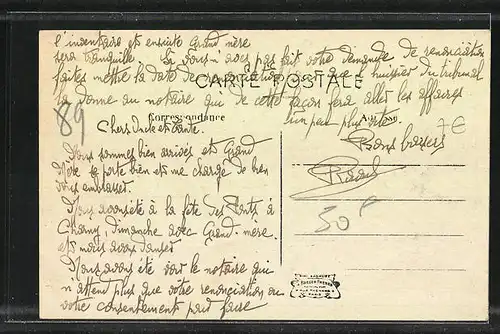 l'inventaire et ensuite Grand mère
sera tranquille. Si vous n'avez pas fait votre demande de renonciation
faites mettre la date de renonciation pour que l'huissier du tribunal
la donne au notaire qui de cette façon fera aller les affaires
un peu plus vite.
CARTE POSTALE
Correspondance
89
7€
Chers Oncle et tante.
Bons baisers
Nous sommes bien arrivés et Grand
Mère se porte bien et me charge de bien
vous embrasser.
50F
Nous avons été à la fête des
Charny, dimanche avec Grand-mère
et nous avons dansé
Nous avons été voir le notaire qui
n'attend plus que votre renonciation ou
votre consentement pour faire